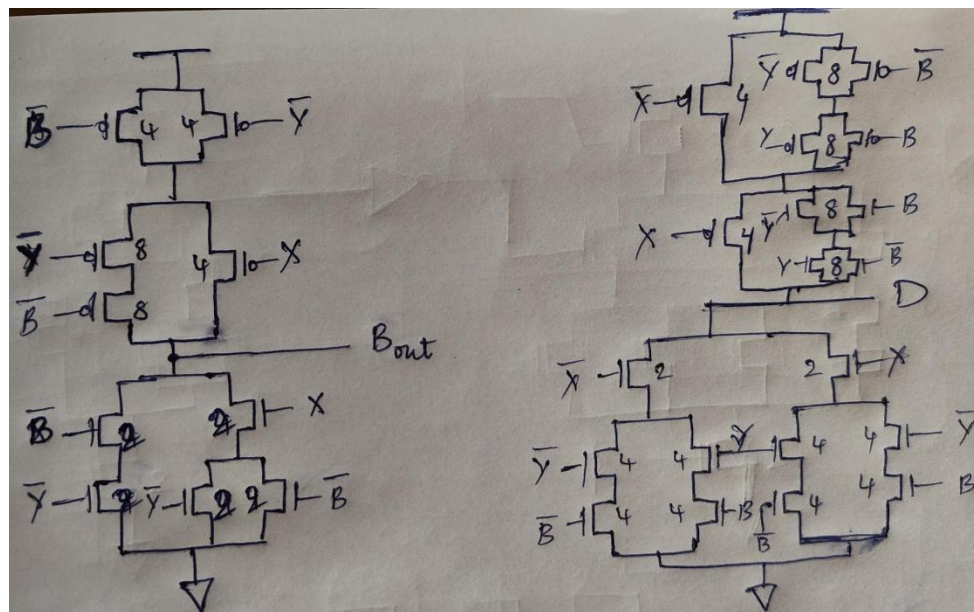 B̅ 4 4 Y̅
Y̅ 8 4 X
B̅ 8
Bout
B̅ 2 2 X
Y̅ 2 Y̅ 2 2 B̅
X̅ 4 Y̅ 8 B̅
Y 8 B
X 4 Y̅ 8 B
Y 8 B̅
D
X̅ 2 2 X
Y̅ 4 4 Y 4 4 Y̅
B̅ 4 4 B B̅ 4 4 B